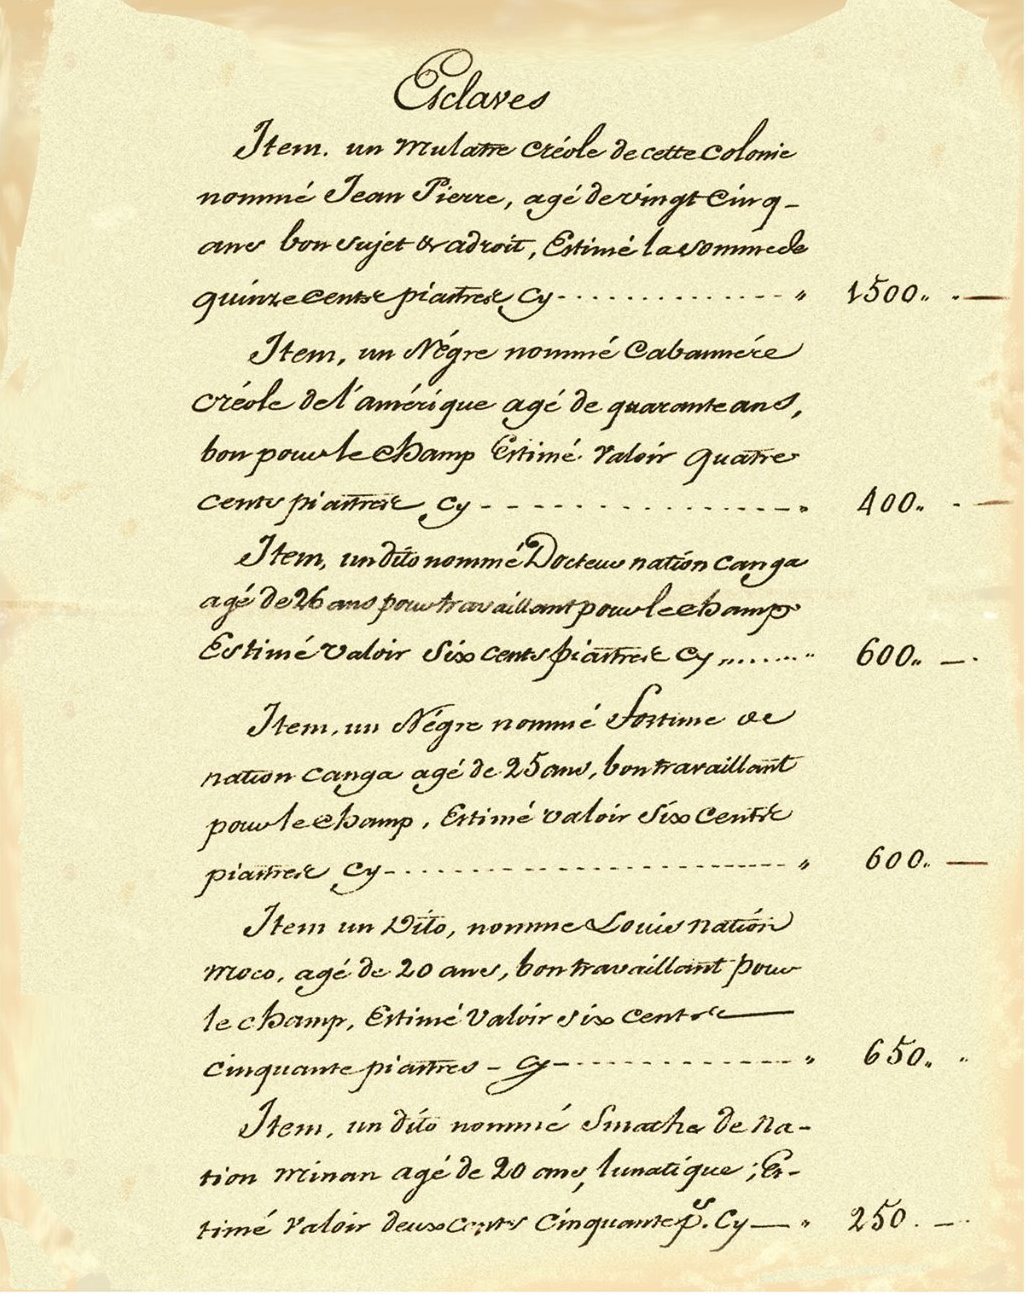 Esclaves
Item. un mulatre créole de cette colonie
nommé Jean Pierre, agé de vingt Cinq-
ans bon sujet & adroit, Estimé la somme de
quinze cents piastres Cy - - - - - " 1500.. . —
Item, un Négre nommé Cabannére
créole de l'amérique agé de quarante ans,
bon pour le champ Estimé Valoir quatre
cents piastres Cy - - - - - " 400.. - —
Item, un dito nommé Docteur nation canga
agé de 26 ans pour travaillant pour le champ
Estimé valoir Six cents piastres Cy ........ 600.. —.
Item, un Négre nommé Fortune de
nation canga agé de 25 ans, bon travaillant
pour le champ, Estimé valoir Six Cents
piastres Cy - - - - - " 600.. —
Item un Dito, nommé Louis nation
moco, agé de 20 ans, bon travaillant pour
le champ, Estimé Valoir six cents —
cinquante piastres - Cy - - - - - " 650.. "
Item, un dito nommé de na-
tion minan agé de 20 ans, lunatique ; Es-
timé Valoir deux cents Cinquante ps. Cy — " 250. —.